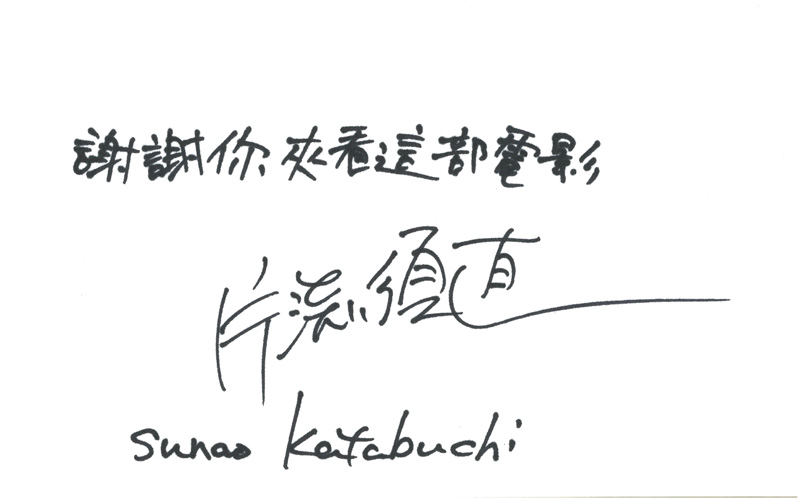 謝謝你來看這部電影
片渕須直
sunao Katabuchi